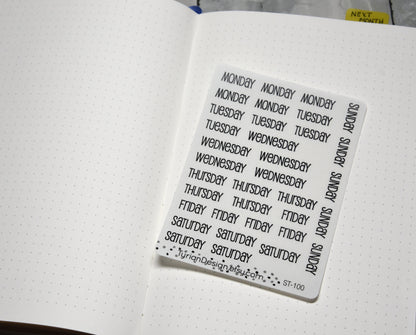 NEXT
MONTH
MONDAY MONDAY MONDAY
MONDAY MONDAY TUESDAY
TUESDAY TUESDAY TUESDAY
TUESDAY WEDNESDAY
WEDNESDAY WEDNESDAY
WEDNESDAY WEDNESDAY
THURSDAY THURSDAY THURSDAY
THURSDAY THURSDAY FRIDAY
FRIDAY FRIDAY FRIDAY FRIDAY
SATURDAY SATURDAY SATURDAY
SATURDAY SATURDAY
SUNDAY
SUNDAY
SUNDAY
SUNDAY
SUNDAY
TyrianDesign.etsy.com
ST-100